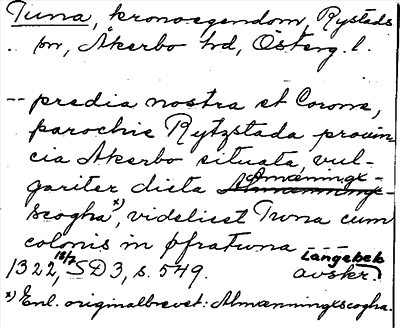 Tuna, kronoegendom, Rystads
sn, Åkerbo hd, Österg. l.
-- predia nostra et Corone,
parochie Rytzstada provin
cia Akerbo situata, vul-
gariter dicta Almænningx-
Scogha x), videlicet Tuna cum
colonis in prato una ---
1322 18/7, SD 3, s. 549. Langebek avskr.
x) Enl. originalbrevet: Almænningxscogha.